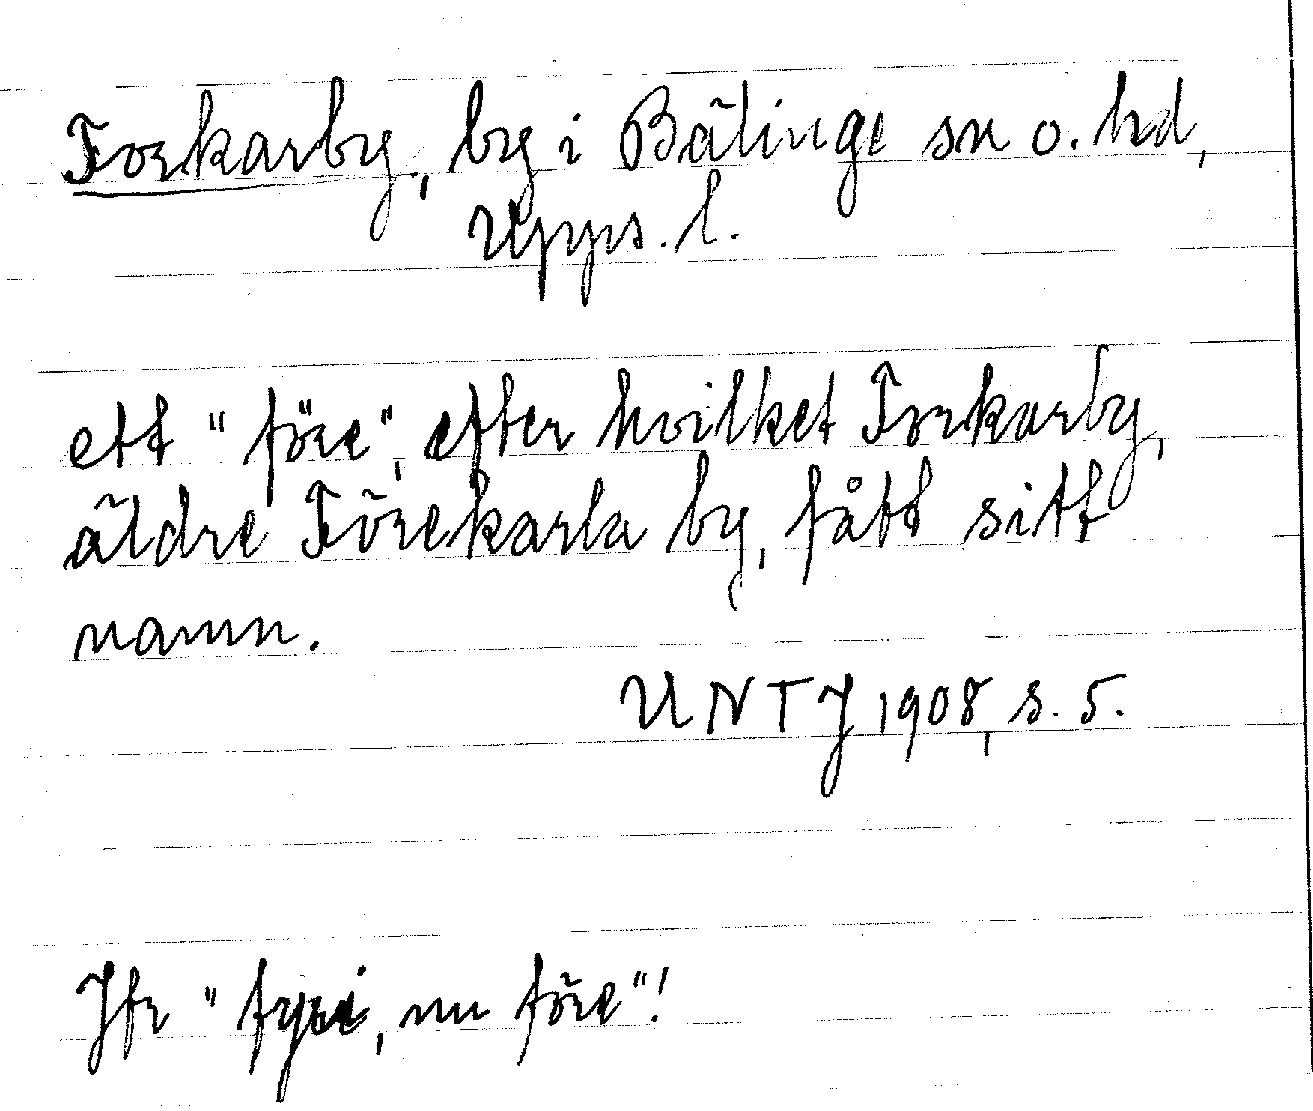 Forkarby, by i Bälinge sn o. hd,
Upps. l.
ett "före", efter hvilket Forkarby,
äldre Förekarla by, fått sitt
namn.
UNTJ 1908, s. 5.
Jfr "fyri, nu före"!